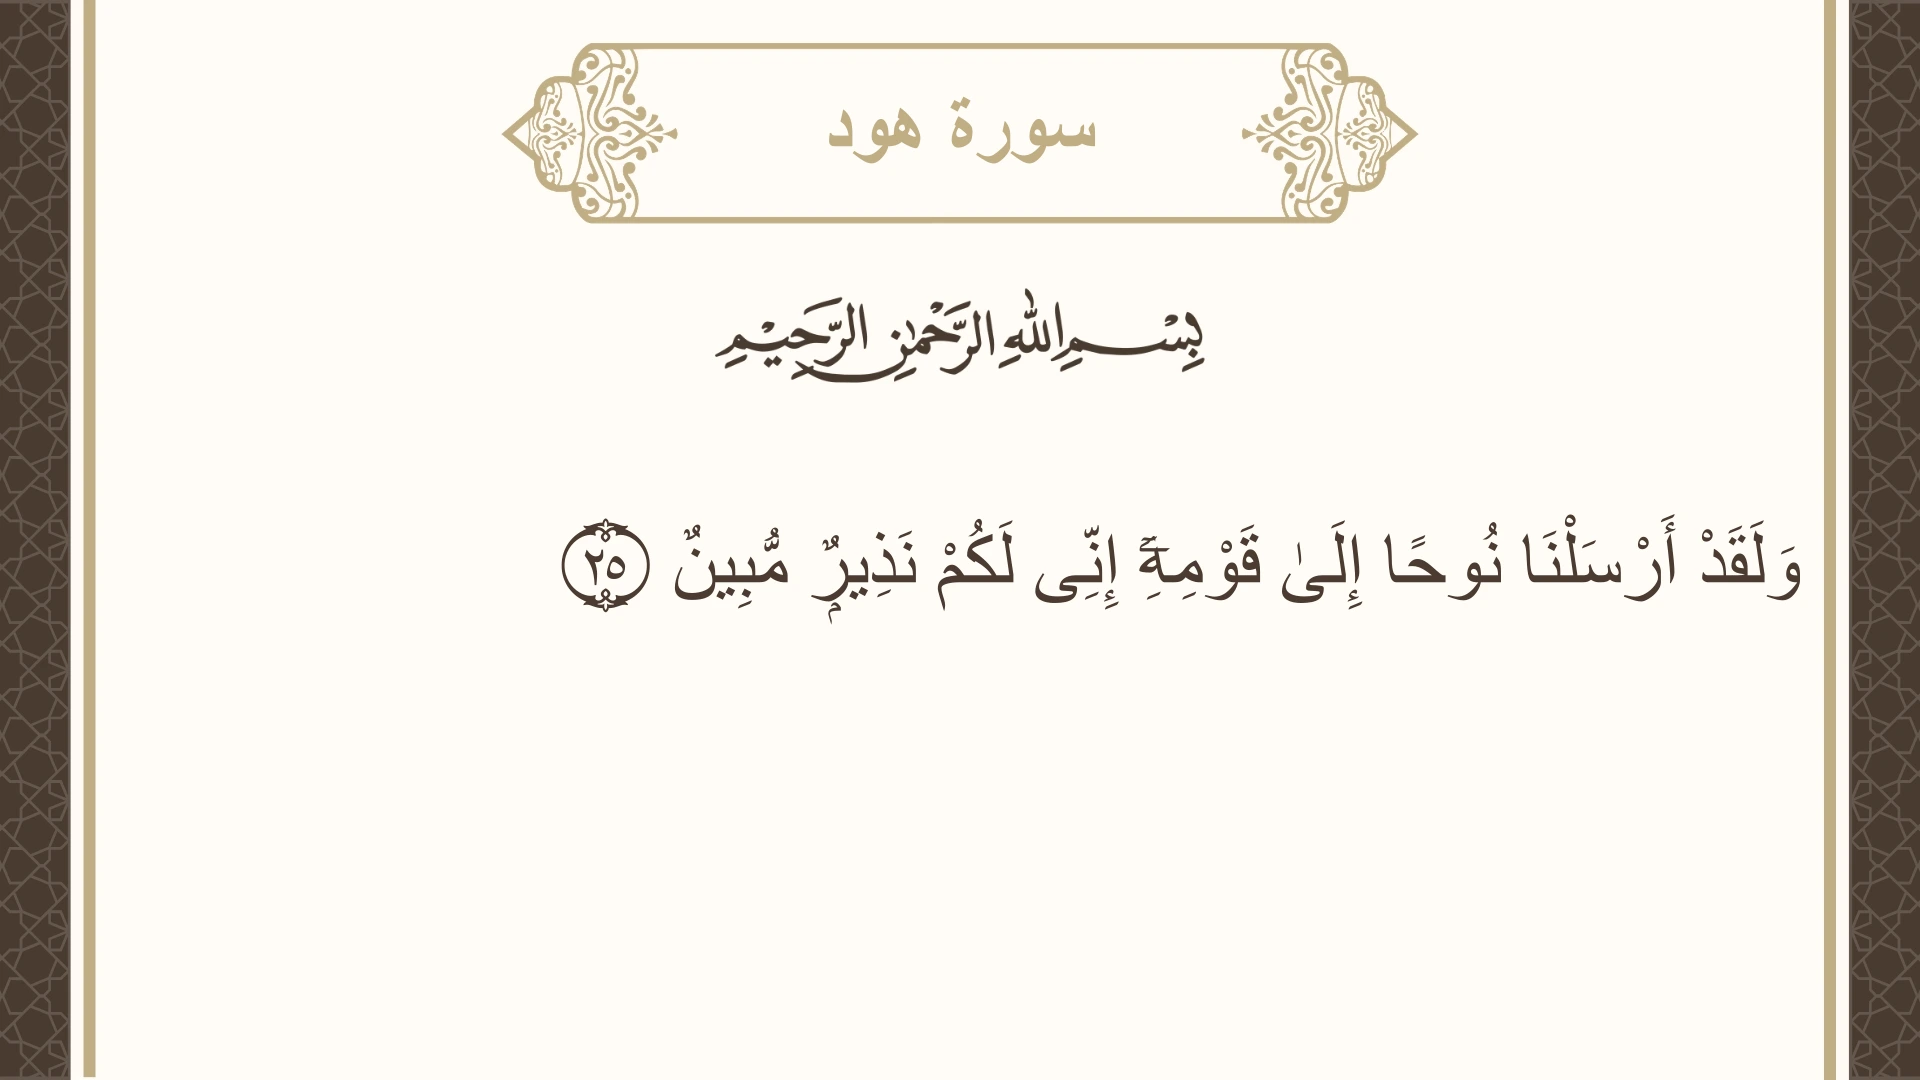 سورة هود
بِسْمِ اللَّهِ الرَّحْمَٰنِ الرَّحِيمِ
وَلَقَدْ أَرْسَلْنَا نُوحًا إِلَىٰ قَوْمِهِۦٓ إِنِّى لَكُمْ نَذِيرٌۭ مُّبِينٌ ٢٥